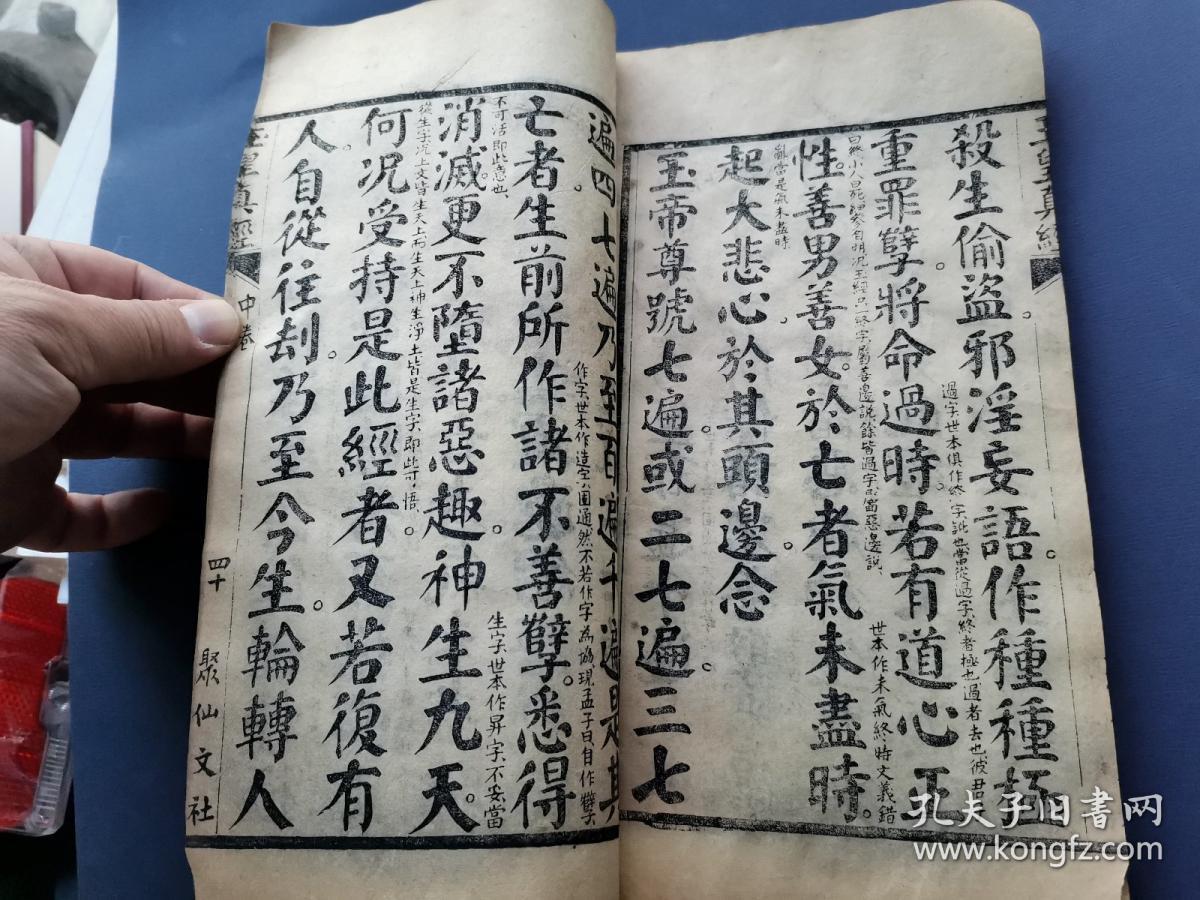 殺生偷盜邪淫妄語作種種極
過字世本俱作終字訛也當從過字終者極也過者去也彼君
重罪孽將命過時若有道心正
性善男善女於亡者氣未盡時
世本作未氣終時文義錯
亂當是氣未盡時
起大悲心於其頭邊念
玉帝尊號七遍或二七遍三七
遍四七遍乃至百遍千遍是其
作字世本作造字固通然不若作字為協現孟子曰自作孽
不可活即此意也
亡者生前所作諸不善孽悉得
消滅更不墮諸惡趣神生九天
生字世本作昇字不妥當
從生字況上文皆生天上而生天上神生淨土皆是生字即此可悟
何況受持是此經者又若復有
人自從往刦乃至今生輪轉人
皇真經
中卷
四十
聚仙文社
孔夫子旧书网
www.kongfz.com